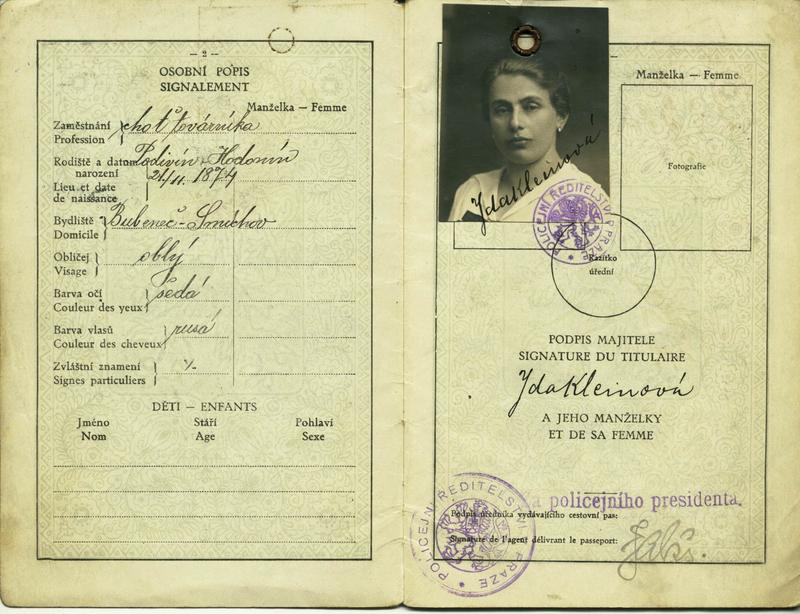 – 2 –
OSOBNÍ POPIS
SIGNALEMENT
Manželka — Femme
Zaměstnání
Profession
choť továrníka
Rodiště a datum
narození
Lieu et date
de naissance
Podivín - Hodonín
24/11. 1874
Bydliště
Domicile
Bubeneč-Smíchov
Obličej
Visage
oblý
Barva očí
Couleur des yeux
šedá
Barva vlasů
Couleur des cheveux
rusá
Zvláštní znamení
Signes particuliers
%
DĚTI – ENFANTS
Jméno Stáří Pohlaví
Nom Age Sexe
Manželka – Femme
Fotografie
Ida Kleinová
POLICEJNÍ ŘEDITELSTVÍ V PRAZE
Razítko
úřední
PODPIS MAJITELE
SIGNATURE DU TITULAIRE
Ida Kleinová
A JEHO MANŽELKY
ET DE SA FEMME
za policejního presidenta.
Podpis úředníka vydávajícího cestovní pas:
Signature de l'agent délivrant le passeport:
POLICEJNÍ ŘEDITELSTVÍ V PRAZE